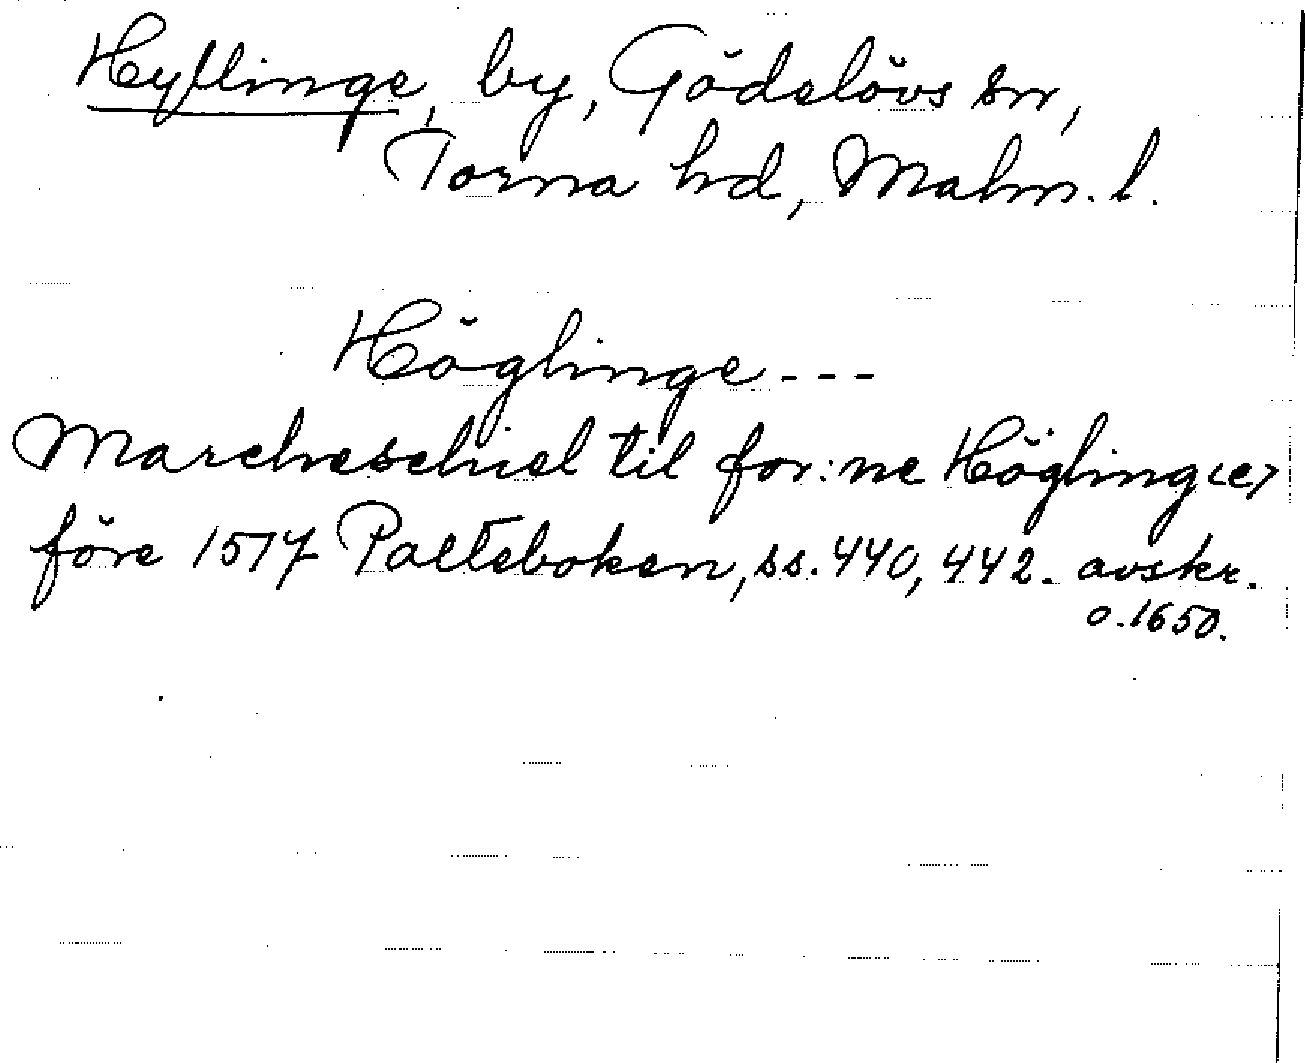 Hyllinge, by, Gödelövs sn,
Torna hd, Malm. l.
Höglinge - - -
Marcheschiel til for:ne Högling<e>
före 1517 Palteboken, ss. 440, 442. avskr.
o. 1650.